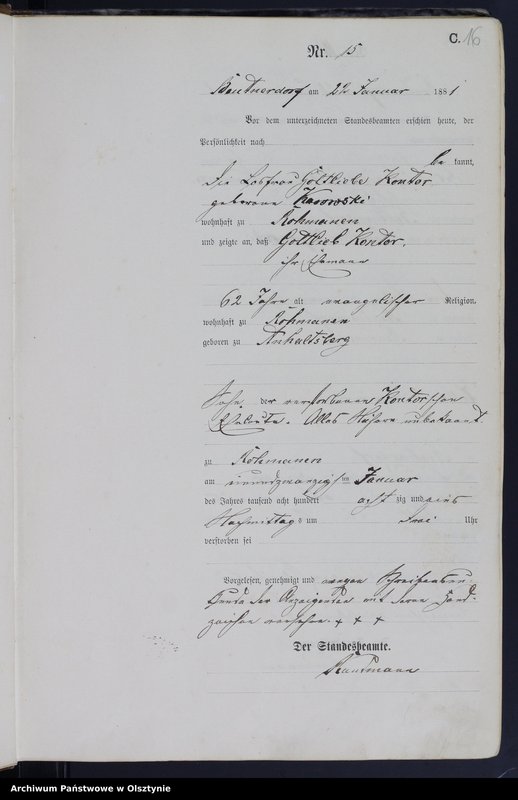 C. 16
Nr. 15
Beutnerdorf am 22 Januar 1881
Vor dem unterzeichneten Standesbeamten erschien heute, der
Persönlichkeit nach
be kannt,
die Losfrau Gottliebe Kontor
geborene
wohnhaft zu Rohmanen
und zeigte an, daß Gottlieb Kontor,
ihr Ehemann
62 Jahre alt evangelischer Religion,
wohnhaft zu Rohmanen
geboren zu Anhaltsberg
Sohn der verstorbenen Kontorschen
Eheleute. Alles Nähere unbekannt
zu Rohmanen
am einundzwanzigsten Januar
des Jahres tausend acht hundert acht zig und eins
Nachmittags um drei Uhr
verstorben sei
Vorgelesen, genehmigt und wegen Schreibensun
kunde der Anzeigenden mit deren Hand-
zeichen versehen. + + +
Der Standesbeamte.
Archiwum Państwowe w Olsztynie